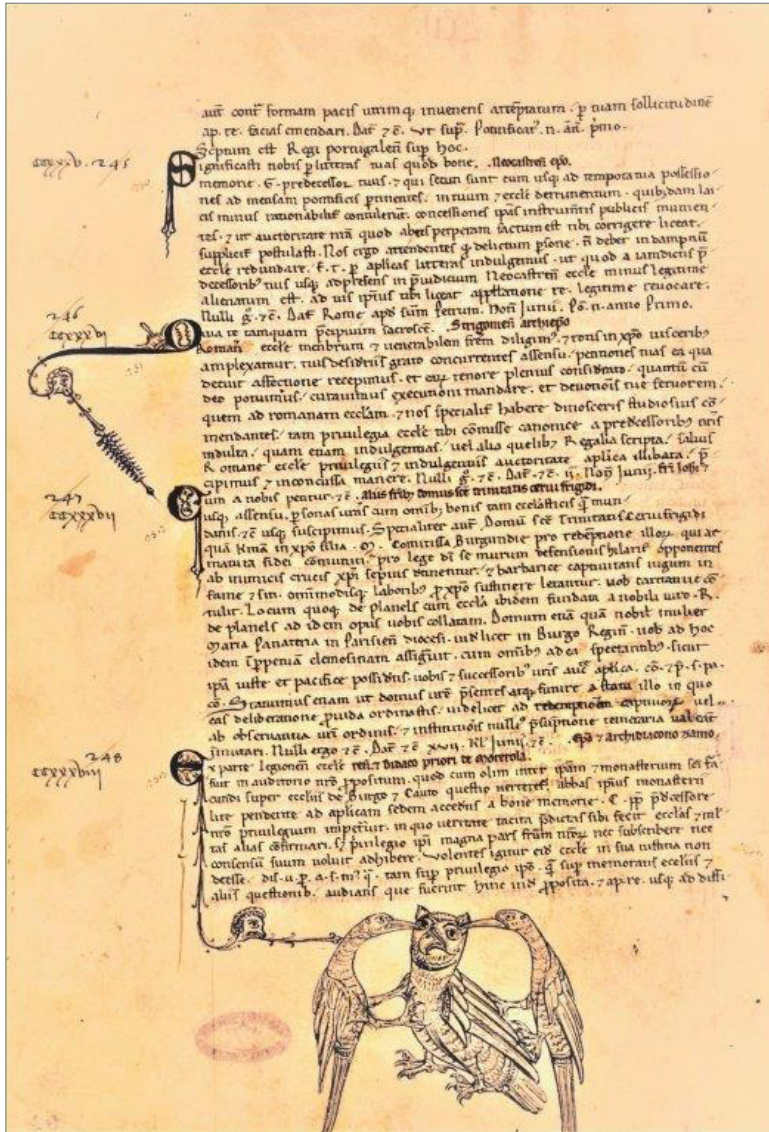 aut cont formam pacis utrimq; inveneris attēptatum. p tuam sollicitudinē
ap. re. facias emendari. Dat ⁊ ē. ut sup̄. Pontificat'. n. an̄. p̄mo.
Scptum est Regi portugaleñ sup hoc.
CCXXXV. 245
Significasti nobis p litteras tuas quod bone. Neocastreñ epō.
memorie. G. predecessor tuus. ⁊ qui secuti sunt eum usq; ad tempora tua possessio
nes ad mensam pontificis ptinentes. in tuum ⁊ ecclē detrimentum. quibusdam lai
cis minus rationabilit contulerūt. concessiones ipas instrumtis publicis munien
tes. ⁊ ut auctoritate nrā quod ab eis perperam factum est tibi corrigere liceat.
supplicit postulasti. Nos ergo attendentes q delictum psone. n̄ debet in dampnū
ecclē redundare. p aplicas litteras indulgemus. ut quod a iamdictis p̄
decessorib; tuis usq; ad presens in p̄iudicium Neocastreñ ecclē minus legitime
alienatum est. ad ius ipius tibi liceat appllatione re. legitime revocare.
Nulli g°. ⁊ē. Dat Rome apd scm̄ Petrum. Noñ Junij. Pō. n. anno Primo.
246
CCXXXVI
Qua te tamquam p̄cipuum sacroscē. Strigonieñ archiepo
Romañ ecclē membrum ⁊ venerabilem frēm diligim'. ⁊ totis in xp̄o visceribus
amplexamur, tuis desideriis grato concurrentes assensu. petitiones tuas ea qua
decuit affectione recepimus. et eaȝ tenore plenius considerato. quantū cū
deo potuimus. curavimus executioni mandare. et devotionis tue fervorem.
quem ad romanam ecclam. ⁊ nos specialit habere dinosceris studiosius cō
mendantes. tam privilegia ecclē tibi cōmisse canonice a predecessorib; nr̄is
indulta. quam etiam indulgentias. vel alia quelib; Regalia scripta. salvis
Romane ecclē privilegiis ⁊ indulgentiis auctoritate aplica illibata. p̄
cipimus ⁊ inconcussa manere. Nulli g°. ⁊ē. Dat. ⁊ē. ij. Noñ Junij.
247
CCXXXVII
Cum a nobis petitur. ⁊ē. Aliis frib; domus scē trinitatis cervi frigidi.
usq; assensu. psonas vras cum omib; bonis tam ecclasticis q̄ mun
danis ⁊ē usq; suscipimus. Specialiter aut. Domū scē Trinitatis Cervi frigidi
quā Kmā in xp̄o filia. M. Comitissa Burgundie pro redēptione illoȝ qui ac
matura fidei comuniti. pro lege dī se murum defensionis hilarit opponentes
ab inimicis crucis xp̄i sepius detinentur. ⁊ barbarice captivitatis iugum in
fame ⁊ siti. omimodisq; laborib; p xp̄o sustinere letantur. vob caritative cō
tulit. Locum quoq; de planels cum eccla ibidem fundata a nobili viro. R.
de planels ad idem opus vobis collatam. Domum etiā quā nobil' mulier
Maria Panateria in Parisieñ diocesi. vidlicet in Burgo Regine. vob ad hoc
idem ippetuā elemosinam assignavit. cum omib; ad ea spectantib;. sicut
ipā iuste et pacifice possidetis. vobis ⁊ successorib; vris auc̄. aplica. cō. ⁊ p̄. s. pa.
cō. Statuimus etiam ut domus vre p̄sentes atq; future a statu illo in quo
eas deliberatione p̄vida ordinastis. videlicet ad redemptiōem captivoȝ vel
ab observantia vri ordinis. ⁊ institutiōis nullius p̄sumptione temeraria valeant
īmutari. Nulli ergo ⁊ ē. Dat ⁊ ē xvii. kl' Junij. ⁊ē. Epō ⁊ archidiacono zamo
248
CCXXXVIII
Ex parte Legionensi ecclē reñ. ⁊ Didaco priori de Morerola.
fuit in auditorio nrō p̄positum. quod cum olim inter ipam ⁊ monasterium sci fa
cundi super ecclīis de Burgo ⁊ Cauto questio verteret. abbas ipius monasterii
lite pendente ad aplicam sedem accedens a bone memorie. C. pp p̄decessore
nro privilegium impetravit. in quo veritate tacita p̄dictas sibi fecit ecclas ⁊ ml'
tas alias confirmari. s; p̄vilegio ipi magna pars frūm nroȝ nec subscribere nec
consensū suum voluit adhibere. Volentes igitur eid ecclē in sua iustitia non
deesse. dis. u. p. a. s. m°. q̄. tam sup p̄vilegio ipō. q̄ sup memoratis ecclīis ⁊
aliis questionib. audiatis que fuerint hinc inde p̄posita. ⁊ ap. re. usq; ad diffi